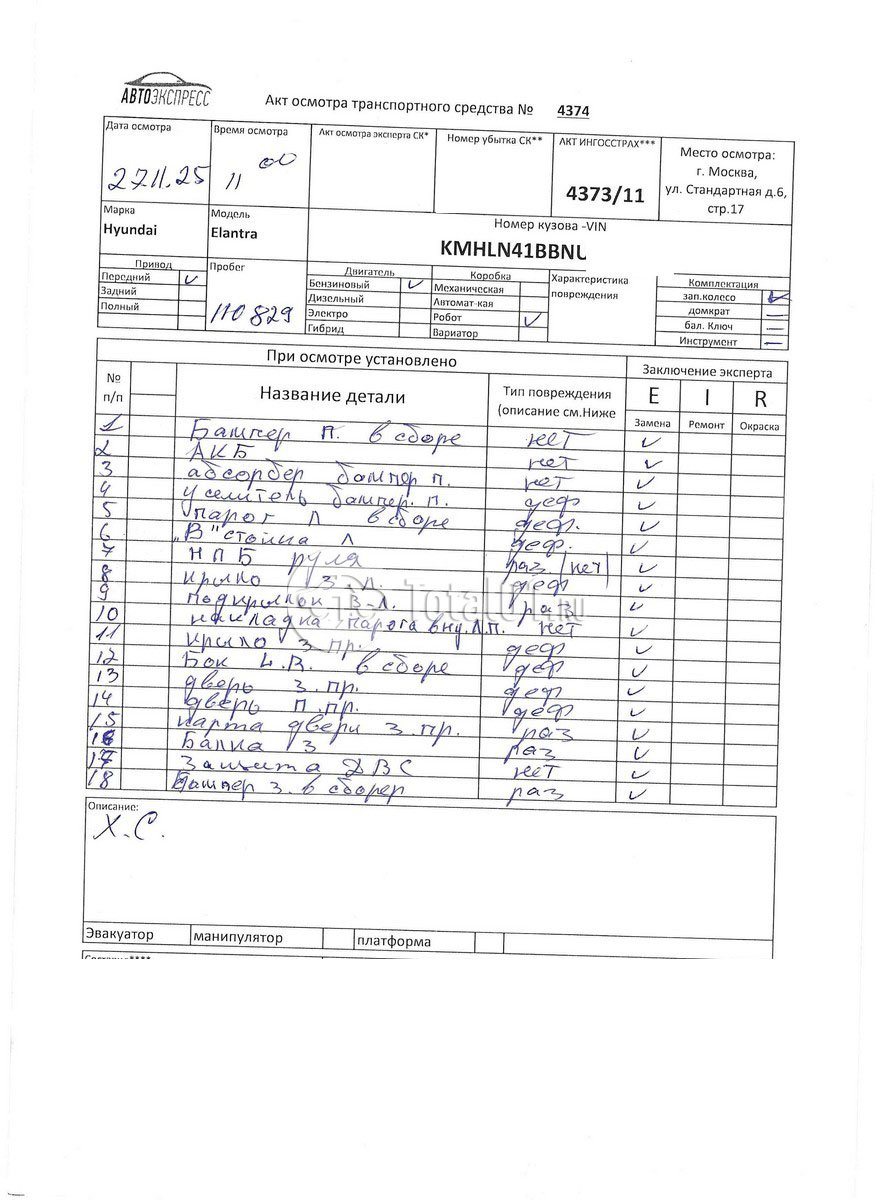 АВТОЭКСПРЕСС
Акт осмотра транспортного средства № 4374
Дата осмотра Время осмотра Акт осмотра эксперта СК* Номер убытка СК** АКТ ИНГОССТРАХ*** Место осмотра:
г. Москва,
ул. Стандартная д.6,
стр.17
27.11.25 11 00 4373/11
Марка Модель Номер кузова -VIN
Hyundai Elantra KMHLN41BBNU
Привод Пробег Двигатель Коробка Характеристика повреждения Комплектация
Передний ✓ Бензиновый ✓ Механическая зап.колесо ✓
Задний Дизельный Автомат-кая домкрат —
Полный Электро Робот ✓ бал. Ключ —
110829 Гибрид Вариатор Инструмент —
При осмотре установлено Заключение эксперта
№ п/п Название детали Тип повреждения (описание см.Ниже E I R
Замена Ремонт Окраска
1 Бампер п. в сборе нет ✓
2 АКБ нет ✓
3 абсорбер бампер п. нет ✓
4 уселитель бампер. п. деф ✓
5 парог Л в сборе деф. ✓
6 „В" стойка Л деф. ✓
7 НПБ руля раз (нет) ✓
8 крыло З л. деф ✓
9 подкрылок З.Л. раз ✓
10 накладка парога вну.Л.П. нет ✓
11 крыло З пр. деф ✓
12 Бок в сборе деф ✓
13 дверь З.пр. деф ✓
14 дверь П.пр. деф ✓
15 карта двери З.пр. раз ✓
16 Балка З раз ✓
17 Защита ДВС нет ✓
18 Бампер З. в сборер раз ✓
Описание:
Х.С.
Эвакуатор манипулятор платформа
Total01.ru